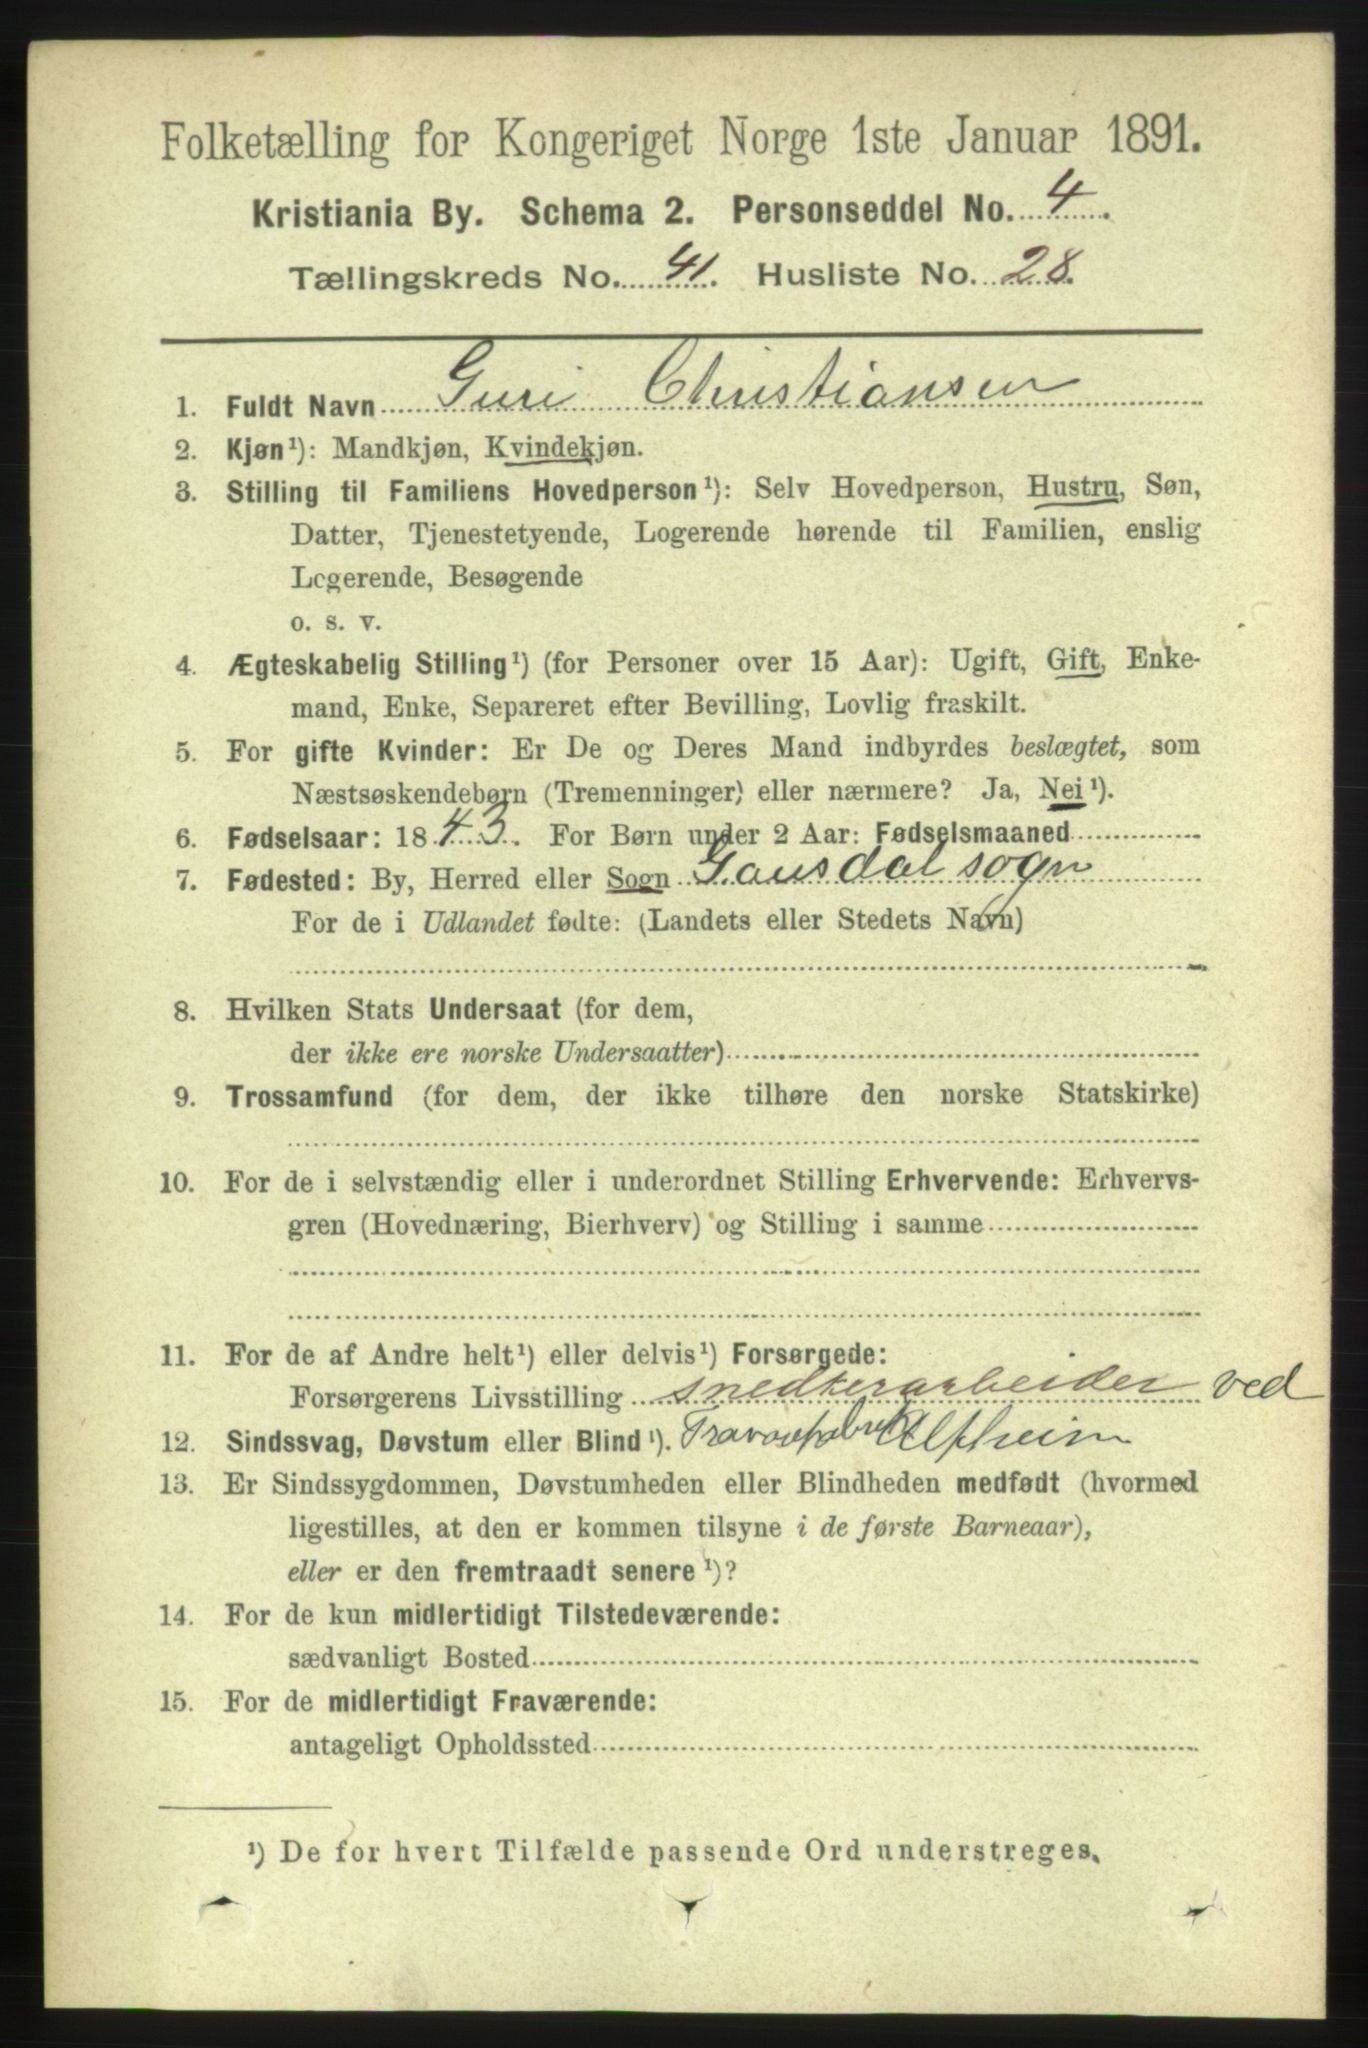 Folketælling for Kongeriget Norge 1ste Januar 1891.
Kristiania By. Schema 2. Personseddel No. 4.
Tællingskreds No. 41. Husliste No. 28.
1. Fuldt Navn Guri Christiansen
2. Kjøn¹): Mandkjøn, Kvindekjøn.
3. Stilling til Familiens Hovedperson¹): Selv Hovedperson, Hustru, Søn,
Datter, Tjenestetyende, Logerende hørende til Familien, enslig
Logerende, Besøgende
o. s. v.
4. Ægteskabelig Stilling¹) (for Personer over 15 Aar): Ugift, Gift, Enke-
mand, Enke, Separeret efter Bevilling, Lovlig fraskilt.
5. For gifte Kvinder: Er De og Deres Mand indbyrdes beslægtet, som
Næstsøskendebørn (Tremenninger) eller nærmere? Ja, Nei¹).
6. Fødselsaar: 1843. For Børn under 2 Aar: Fødselsmaaned
7. Fødested: By, Herred eller Sogn Gausdal sogn
For de i Udlandet fødte: (Landets eller Stedets Navn)
8. Hvilken Stats Undersaat (for dem,
der ikke ere norske Undersaatter)
9. Trossamfund (for dem, der ikke tilhøre den norske Statskirke)
10. For de i selvstændig eller i underordnet Stilling Erhvervende: Erhvervs-
gren (Hovednæring, Bierhverv) og Stilling i samme
11. For de af Andre helt¹) eller delvis¹) Forsørgede:
Forsørgerens Livsstilling snedkerarbeider ved
12. Sindssvag, Døvstum eller Blind¹). Alfheim
13. Er Sindssygdommen, Døvstumheden eller Blindheden medfødt (hvormed
ligestilles, at den er kommen tilsyne i de første Barneaar),
eller er den fremtraadt senere¹)?
14. For de kun midlertidigt Tilstedeværende:
sædvanligt Bosted
15. For de midlertidigt Fraværende:
antageligt Opholdssted
¹) De for hvert Tilfælde passende Ord understreges.